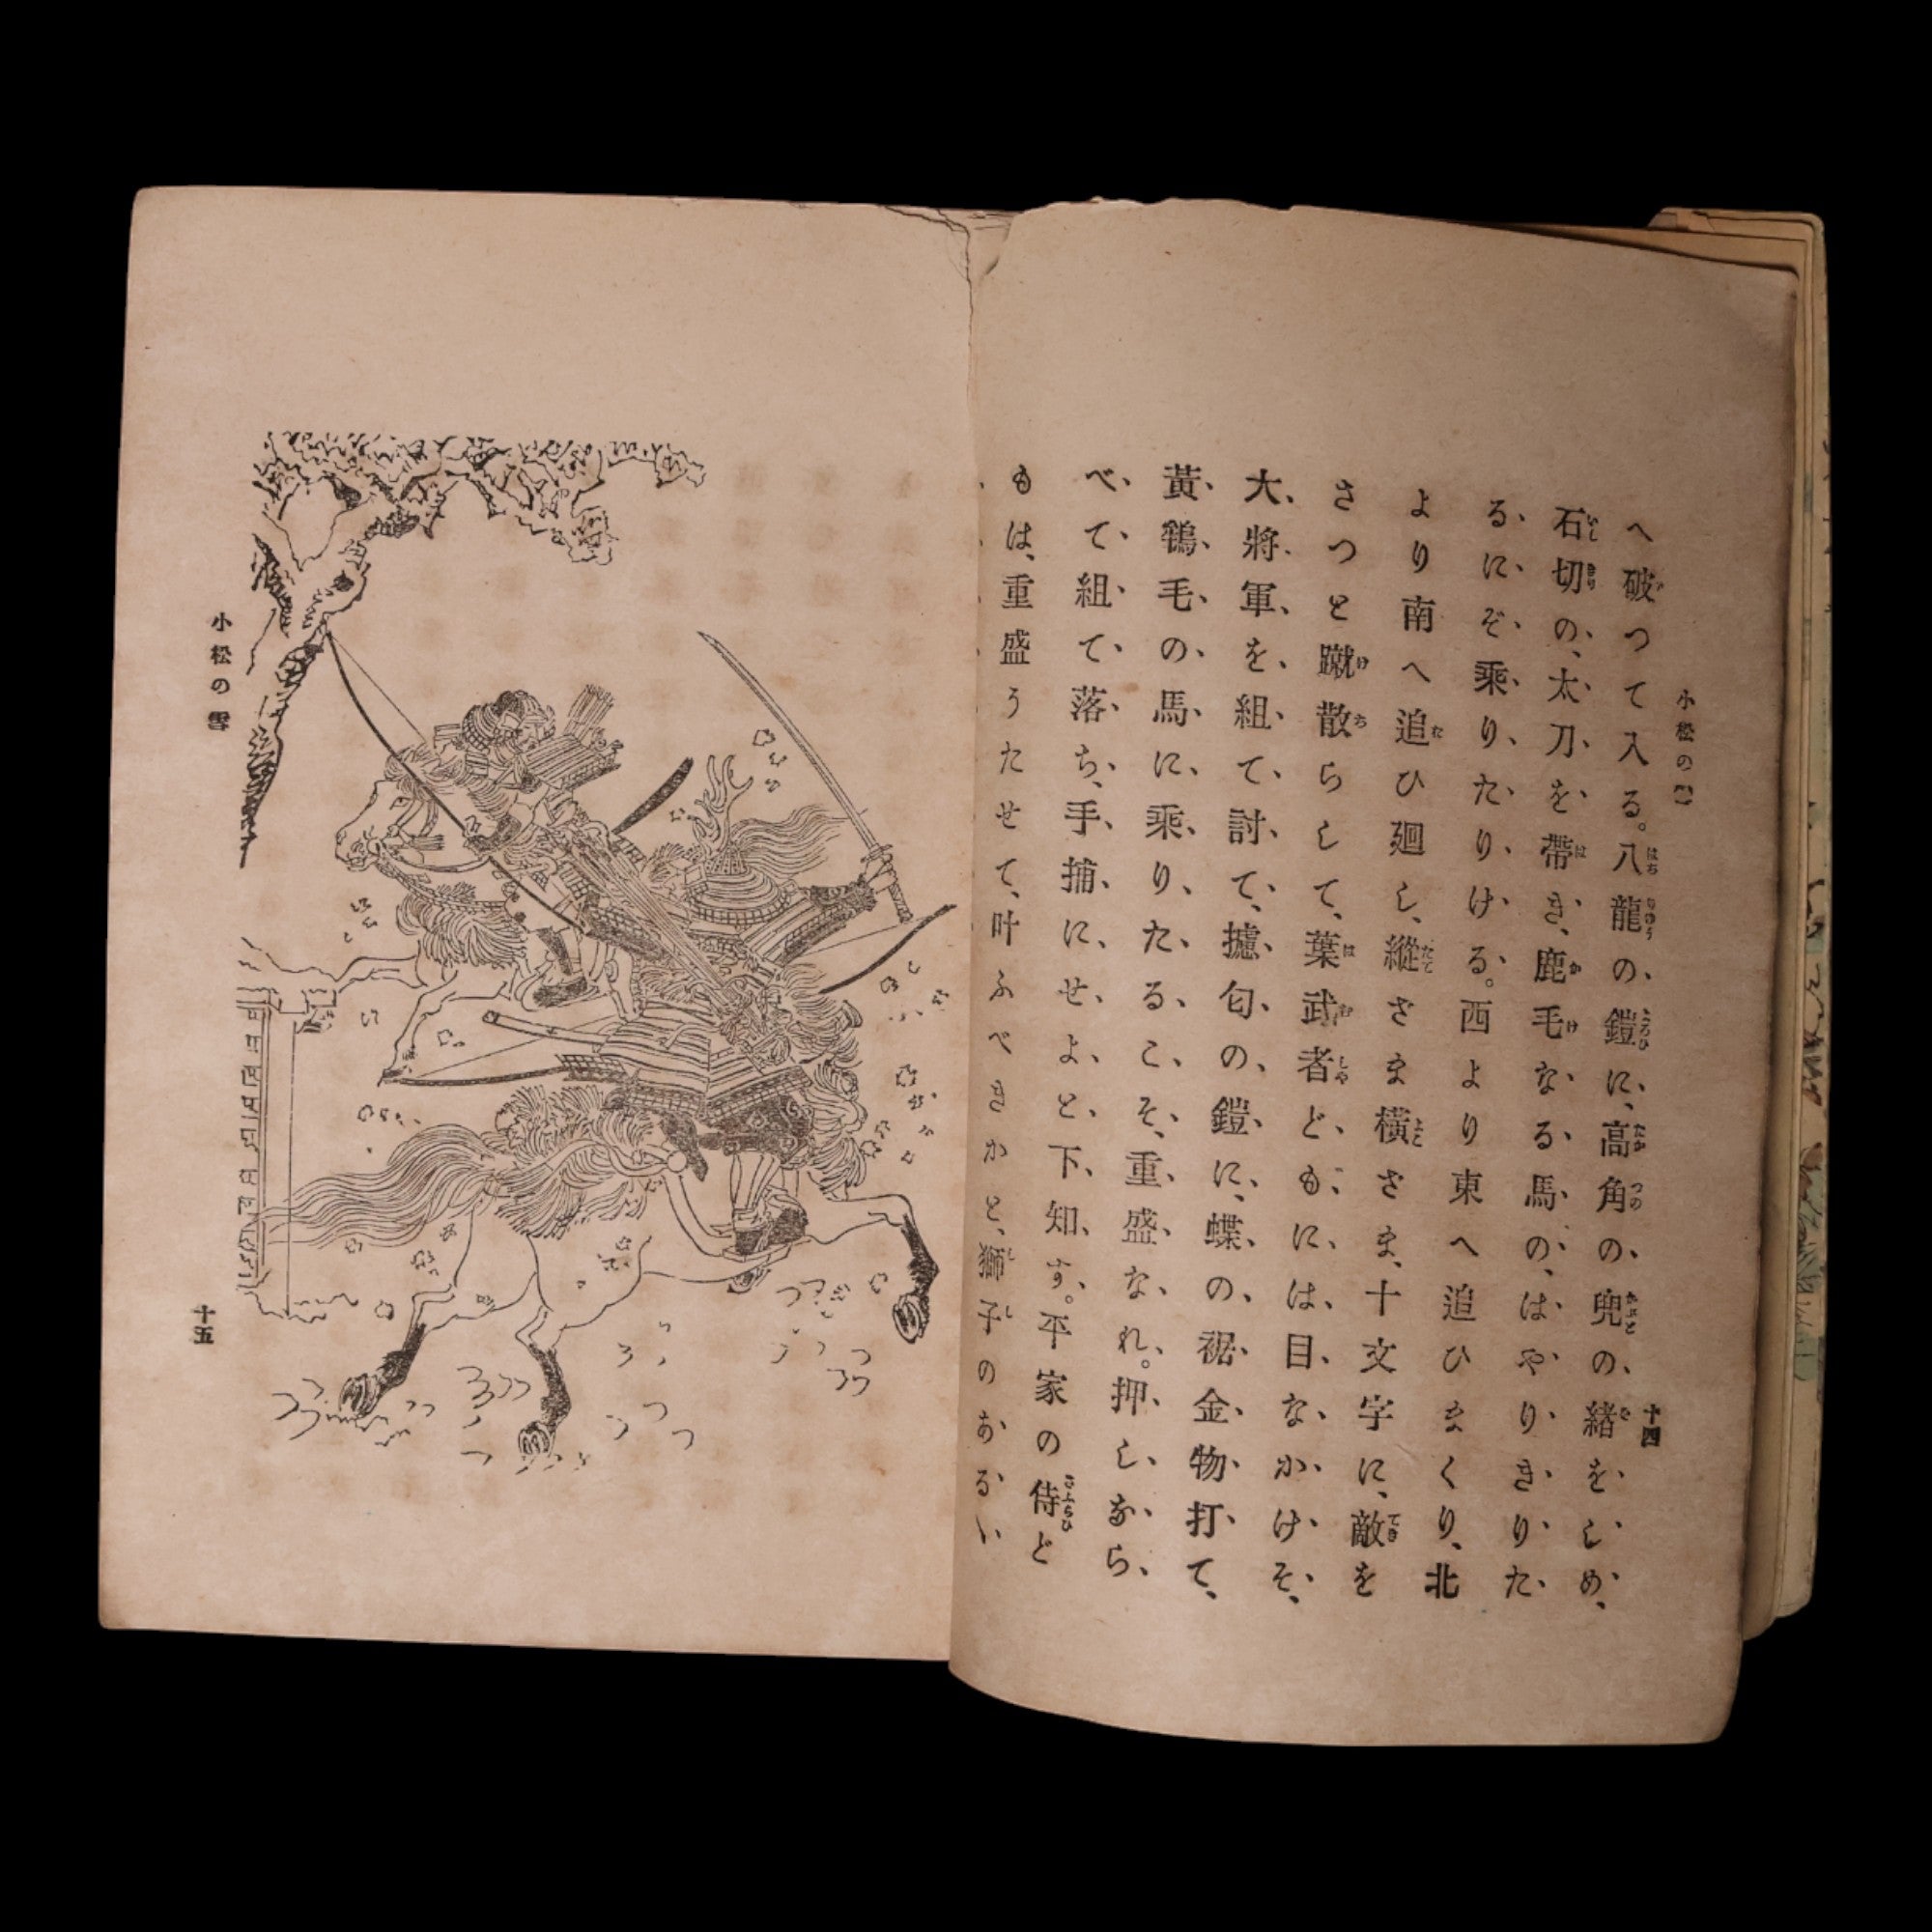 小松の雪
十四
へ破つて入る。八龍の、鎧に、高角の、兜の、緒を、しめ、
石切の、太刀を、帶き、鹿毛なる馬の、はやりきりた
るにぞ乘りたりける。西より東へ追ひまくり、北
より南へ追ひ廻し、縱さま橫さま、十文字に、敵を
さつと蹴散らして、葉武者どもには目なかけそ、
大將軍を組て討て、攄匂の鎧に、蝶の裾金物打て、
黃鴾毛の馬に乘りたるこそ、重盛なれ。押しなら
べて組て落ち、手捕にせよと下知す。平家の侍ど
もは、重盛うたせて、叶ふべきかと、獅子のおるい
小松の雪
十五